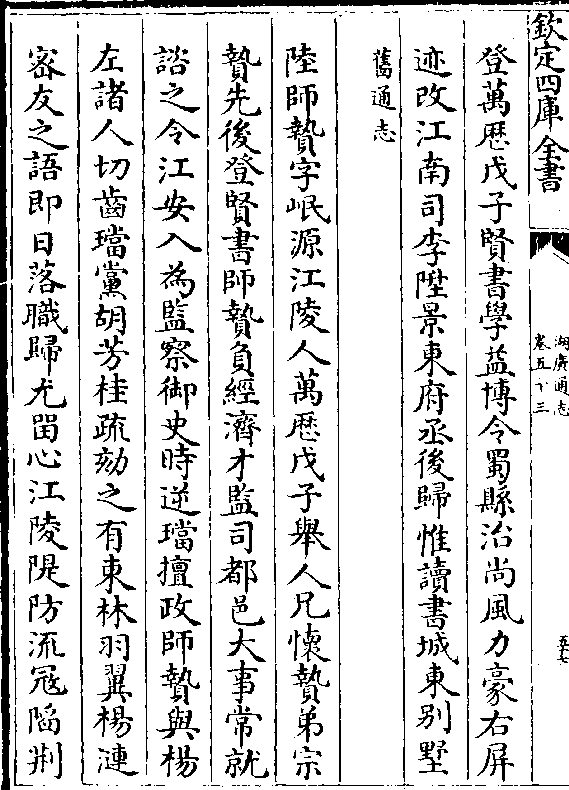 欽定四庫全書
湖廣通志
卷五十三
五十七
登萬厯戊子賢書學益博令蜀縣治尚風力豪右屏
迹改江南司李陞景東府丞後歸惟讀書城東別墅
舊通志
陸師贄字岷源江陵人萬厯戊子舉人兄懷贄弟宗
贄先後登賢書師贄負經濟才監司都邑大事常就
諮之令江安入為監察御史時逆璫擅政師贄與楊
左諸人切齒璫黨胡芳桂疏劾之有東林羽翼楊漣
宻友之語即日落職歸尤留心江陵隄防流冦陷荆